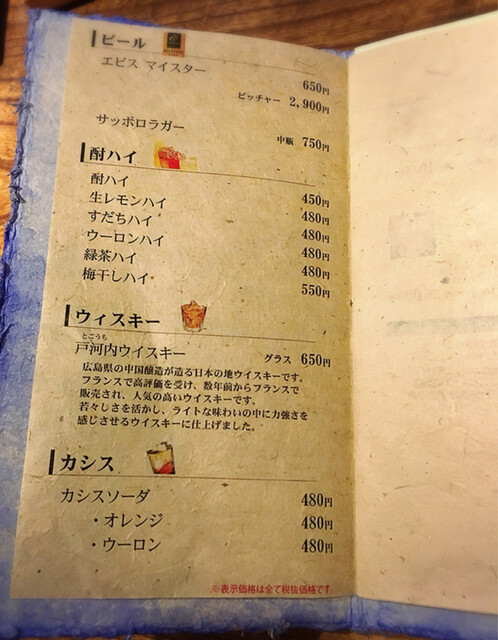 ビール
エビス マイスター
650円
ピッチャー 2,900円
サッポロラガー
中瓶 750円
酎ハイ
酎ハイ 450円
生レモンハイ 480円
すだちハイ 480円
ウーロンハイ 480円
緑茶ハイ 480円
梅干しハイ 550円
ウィスキー
とごうち
戸河内ウイスキー グラス 650円
広島県の中国醸造が造る日本の地ウイスキーです。
フランスで高評価を受け、数年前からフランスで
販売され、人気の高いウイスキーです。
若々しさを活かし、ライトな味わいの中に力強さを
感じさせるウイスキーに仕上げました。
カシス
カシスソーダ 480円
・オレンジ 480円
・ウーロン 480円
※表示価格は全て税抜価格です。